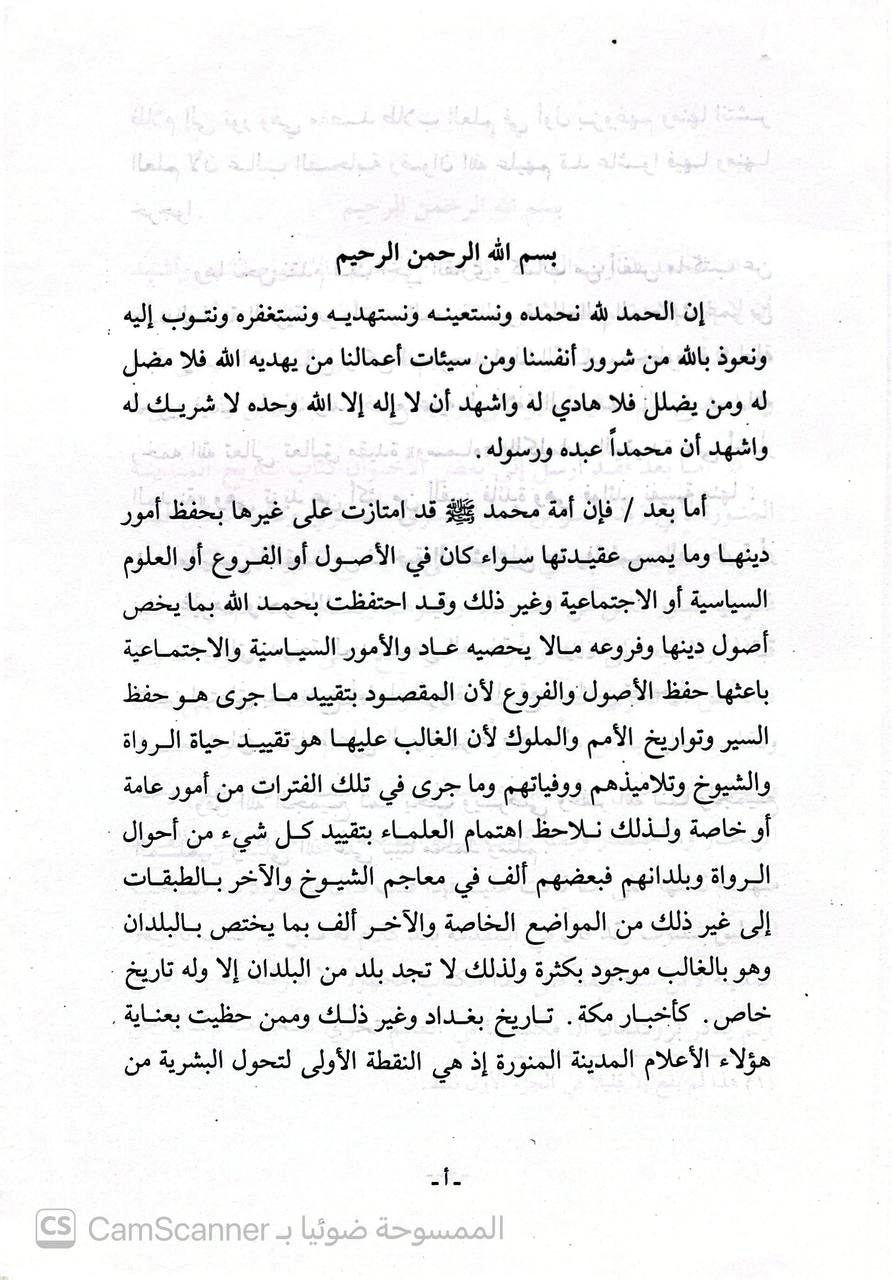 بسم الله الرحمن الرحيم
إن الحمد لله نحمده ونستعينه ونستهديه ونستغفره ونتوب إليه
ونعوذ بالله من شرور أنفسنا ومن سيئات أعمالنا من يهديه الله فلا مضل
له ومن يضلل فلا هادي له واشهد أن لا إله إلا الله وحده لا شريك له
واشهد أن محمداً عبده ورسوله .
أما بعد / فإن أمة محمد ﷺ قد امتازت على غيرها بحفظ أمور
دينها وما يمس عقيدتها سواء كان في الأصول أو الفروع أو العلوم
السياسية أو الاجتماعية وغير ذلك وقد احتفظت بحمد الله بما يخص
أصول دينها وفروعه مالا يحصيه عاد والأمور السياسية والاجتماعية
باعثها حفظ الأصول والفروع لأن المقصود بتقييد ما جرى هو حفظ
السير وتواريخ الأمم والملوك لأن الغالب عليها هو تقييد حياة الرواة
والشيوخ وتلاميذهم ووفياتهم وما جرى في تلك الفترات من أمور عامة
أو خاصة ولذلك نلاحظ اهتمام العلماء بتقييد كل شيء من أحوال
الرواة وبلدانهم فبعضهم ألف في معاجم الشيوخ والآخر بالطبقات
إلى غير ذلك من المواضع الخاصة والآخر ألف بما يختص بالبلدان
وهو بالغالب موجود بكثرة ولذلك لا تجد بلد من البلدان إلا وله تاريخ
خاص . كأخبار مكة . تاريخ بغداد وغير ذلك وممن حظيت بعناية
هؤلاء الأعلام المدينة المنورة إذ هي النقطة الأولى لتحول البشرية من
- أ -
CS CamScanner الممسوحة ضوئيا بـ